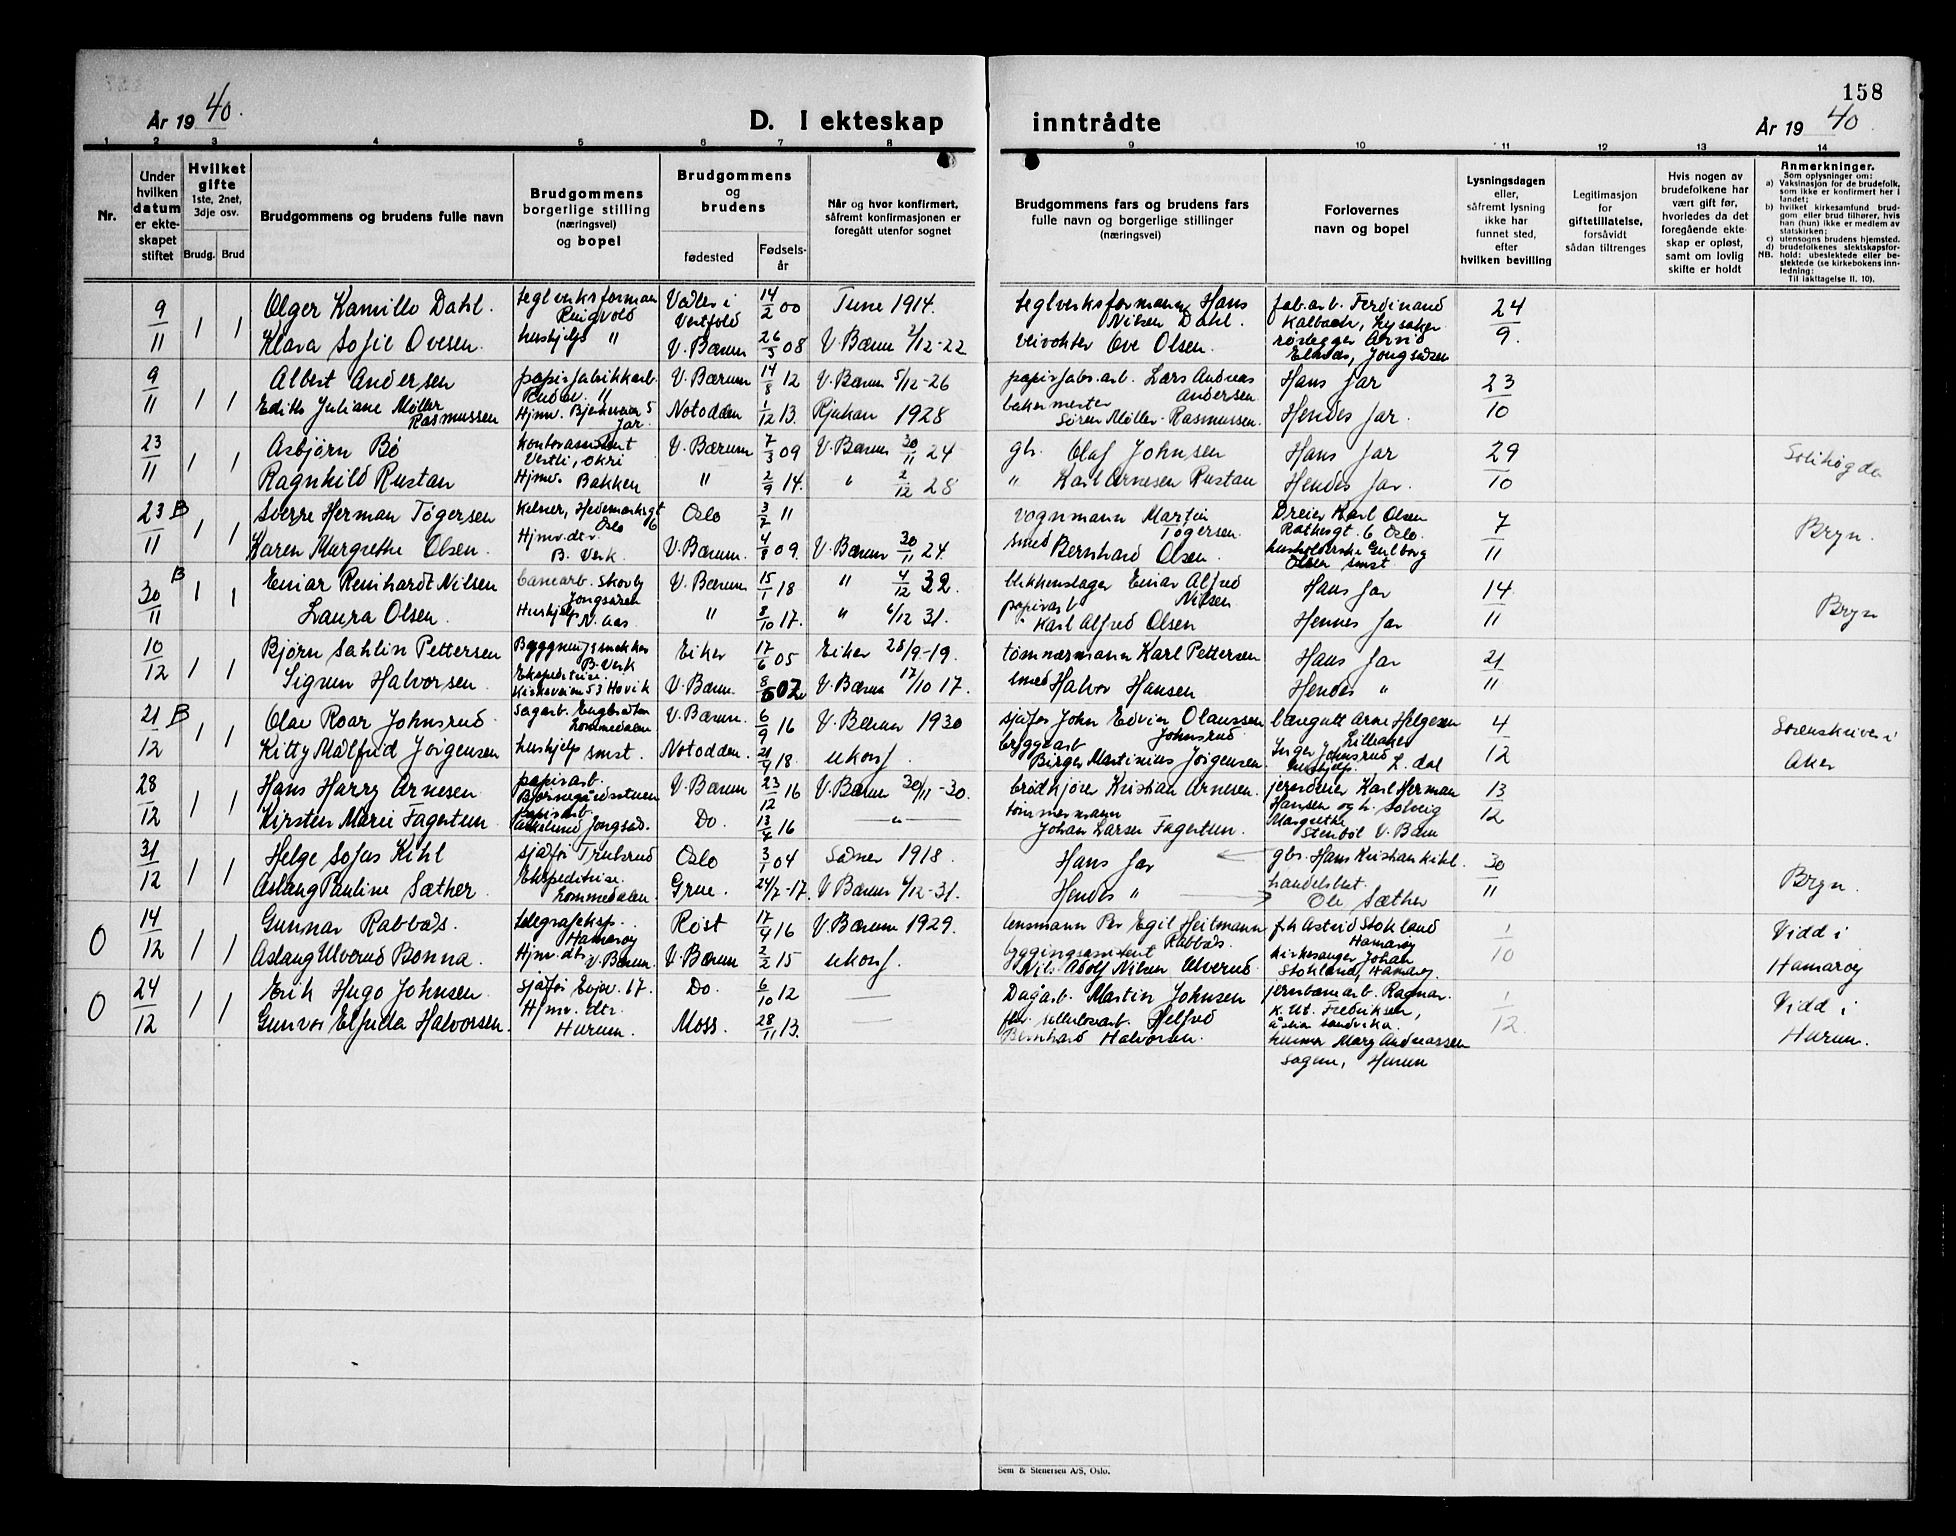 158
År 19 40.
D. I ekteskap inntrådte
År 19 40.
1 2 3 4 5 6 7 8 9 10 11 12 13 14
Nr.
Under hvilken datum er ekte-skapet stiftet
Hvilket gifte
1ste, 2net, 3dje osv.
Brudg. Brud
Brudgommens og brudens fulle navn
Brudgommens borgerlige stilling (næringsvei) og bopel
Brudgommens og brudens
fødested
Fødsels-år
Når og hvor konfirmert, såfremt konfirmasjonen er foregått utenfor sognet
Brudgommens fars og brudens fars fulle navn og borgerlige stillinger (næringsvei)
Forlovernes navn og bopel
Lysningsdagen eller, såfremt lysning ikke har funnet sted, efter hvilken bevilling
Legitimasjon for giftetillatelse, forsåvidt sådan tiltrenges
Hvis nogen av brudefolkene har vært gift før, hvorledes da det foregående ekte-skap er opløst, samt om lovlig skifte er holdt
Anmerkninger.
Som oplysninger om:
a) Vaksinasjon for de brudefolk, som ikke er konfirmert her i landet;
b) hvilket kirkesamfund brudgom eller brud tilhører, hvis han (hun) ikke er medlem av statskirken;
c) utensogns brudens hjemsted.
d) brudefolkenes slektskapsfor-
NB. hold: ubeslektede eller be-slektede (se kirkebokens inn-ledning:
Til iakttagelse II. 10).
9/11 1 1 Olger Kamillo Dahl. teglverksformann Ringvold Vestfold 14/2 00 Tune 1914. teglverksformann Hans Nilsen Dahl. fab.arb. Ferdinand Kalbach, Lysaker 24/9.
Klara Sofie Ovesen. hushjelp " V. Bærum 26/5 08 V Bærum 2/12-22 veivokter Ove Olsen. rørlegger Arvid
9/11 1 1 Albert Andersen papirfabrikkarb. V. Bærum 14/8 12 V. Bærum 5/12-26 papirfabr.arb. Lars Andreas Andersen. Hans far 23/10
Edith Juliane Møller Rasmussen Hjmv. Jar. Notodden 1/12 13. Rjukan 1928 bakermester Søren Møller-Rasmussen. Hendes far.
23/11 1 1 Asbjørn Bø kontorassistent V. Bærum 7/3 09 V Bærum 30/11 24 gbr. Olaf Johnsen Hans far 29/10 Solihøgda
Ragnhild Rustan Hjmv. Bakken " 2/9 14. " 2/12 28 " Karl Arnesen Rustan Hendes far.
23 B/11 1 1 Sverre Herman Tøgersen Kelner, Hedemarksgt 6 Oslo Oslo 3/2 11 vognmann Martin Tøgersen. Dreier Karl Olsen Oslo. 7/11 Bryn.
Karen Margrethe Olsen. Hjmv.der. B. Verk V. Bærum. 4/8 09. V. Bærum 30/11 24. smed Bernhard Olsen. husholderske Gulborg Olsen smst
30 B/11 1 1 Einar Reinhardt Nilsen Jongsåsen V. Bærum 15/1 18 " 4/12 32. blikkenslager Einar Alfred Nilsen Hans far 14/11 Bryn
Laura Olsen. Hushjelp N. Aas " 8/10 17. " 6/12 31. papirarb Karl Alfred Olsen Hennes far
10/12 1 1 Bjørn Sahlin Pettersen B. Verk Eiker 17/6 05 Eiker 28/9-19. tømmermann Karl Pettersen Hans far 21/11
Sigrun Halvorsen. Ekspeditrise. Kirkeveien 53 Høvik V. Bærum. 8/5 02 V. Bærum 17/10 17. smed Halvor Hansen Hendes "
21 B/12 1 1 Olav Roar Johnsrud Lommedalen V. Bærum. 6/9 16 V. Bærum 1930 sjåfør John Edvin Olaussen Johnsrud Arne Helgesen Lilleaker 4/12 Sorenskriver i Aker
Kitty Målfrid Jørgensen hushjelp smst. Notodden. 18. ukonf. bryggearb Birger Martinius Jørgensen. Inger Johnsrud hushjelp. L. dal
28/12 1 1 Hans Harry Arnesen papirarb. Bjørnegårdsstuen V. Bærum 23/12 16 V. Bærum 30/11-30. brødkjører Kristian Arnesen. jerndreier Karl Herman Hansen og h. Solveig Margrethe Stenbøl V. Bærum 13/12
Kirsten Marie Fagertun. papirarb Do. 13/4 16 — " — tømmermann Johan Larsen Fagertun.
31/12 1 1 Helge Sofus Kihl sjåfør Trulsrud Oslo 3/1 04 1918. Hans far gbr. Hans Kristian Kihl. 30/11 Bryn.
Aslaug Pauline Sæther. Ekspeditrise Lommedalen Grue. 24/7-17. V Bærum 6/12-31. Hendes " handelsbest. Ole Sæther
0 14/12 1 1 Gunnar Rabbås. telegrafeksp. Hamarøy Røst 17/4 16 V. Bærum 1929. lensmann Per Egil Heitmann Rabbås. Astrid Stokland Hamarøy 1/10 Vidd i Hamarøy
Aslaug Ulverud Bonna. Hjmv. dtr. V. Bærum. V. Bærum 2/2 15 ukonf. Nils Adolf Nilsen Ulverud kirkesanger Johan Stokland, Hamarøy.
0 24/12 1 1 Erik Hugo Johnsen. sjåfør Evjev. 17. Do. 6/10 12 — Dagarb. Martin Johnsen jernbanearb. Ragnar Fredriksen, Sandvika. 1/12. Vidd i Hurum.
Gunvor Elfrida Halvorsen. Hjmv. dtr. Hurum. Moss. 28/11 13. — Helfred Bernhard Halvorsen. Mary Andreassen
Sagene, Hurum
Sem & Stenersen A/S, Oslo.